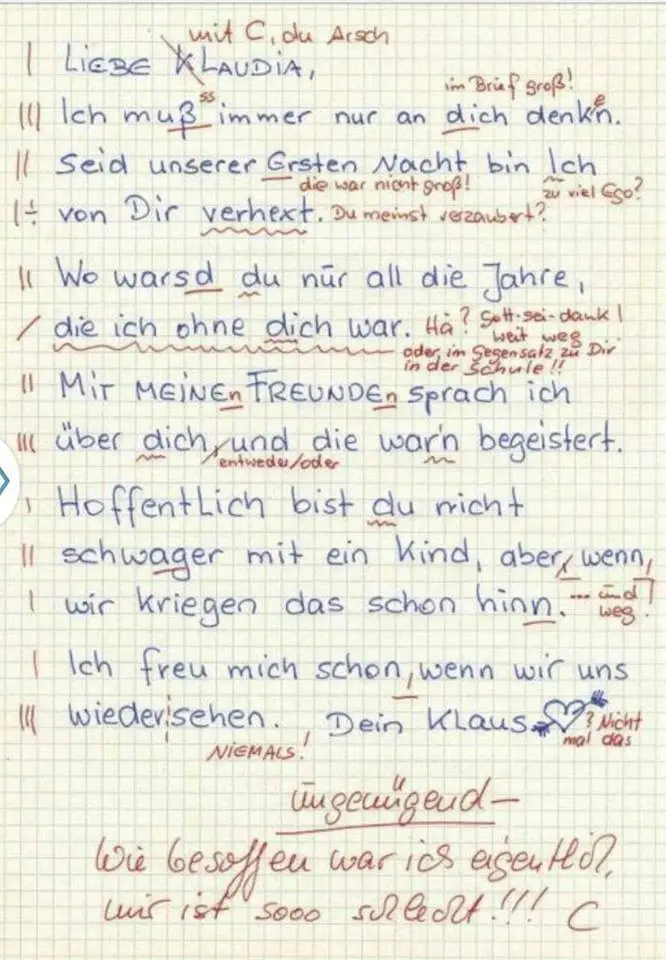 mit C, du Arsch
| LIEBE KLAUDIA,
im Brief groß!
||| Ich muß immer nur an dich denk'n.
ss
e
|| Seid unserer Ersten Nacht bin Ich
die war nicht groß!
zu viel Ego?
|÷ von Dir verhext. Du meinst verzaubert?
|| Wo warsd du nur all die Jahre,
/ die ich ohne dich war. Hä? Gott-sei-dank!
weit weg
oder im Gegensatz zu Dir
in der Schule!!
|| MIT MEINEn FREUNDEn sprach ich
||| über dich, und die war'n begeistert.
entweder/oder
| Hoffentlich bist du nicht
|| schwager mit ein Kind, aber, wenn,
| wir kriegen das schon hinn. ... und
weg.
| Ich freu mich schon, wenn wir uns
||| wieder|sehen. Dein Klaus ? Nicht
mal das
NIEMALS!
ungenügend –
Wie besoffen war ich eigentlich,
mir ist sooo schlecht!!! C